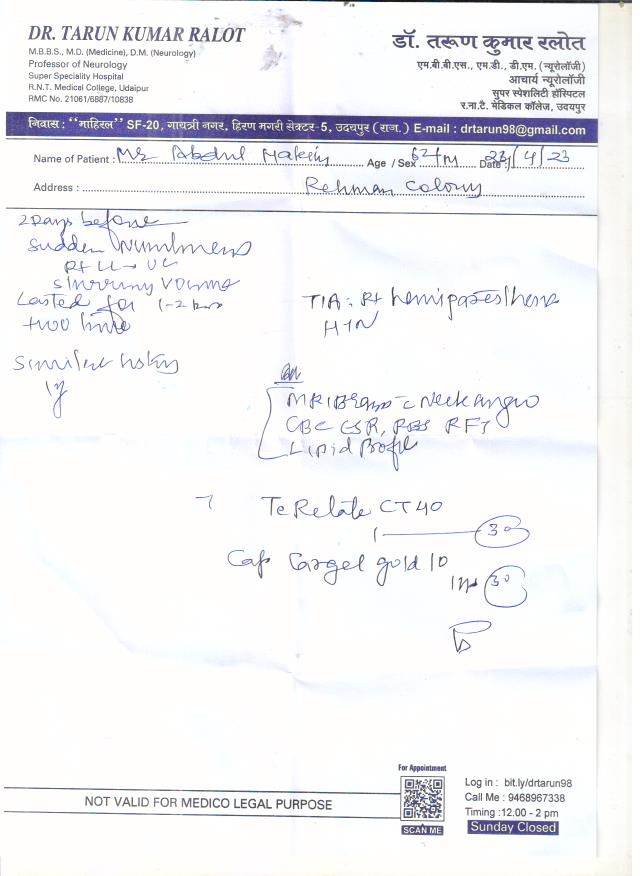 DR. TARUN KUMAR RALOT
M.B.B.S., M.D. (Medicine), D.M. (Neurology)
Professor of Neurology
Super Speciality Hospital
R.N.T. Medical College, Udaipur
RMC No. 21061/6887/10838
डॉ. तरूण कुमार रलोत
एम.बी.बी.एस., एम.डी., डी.एम. (न्यूरोलॉजी)
आचार्य न्यूरोलॉजी
सुपर स्पेशलिटी हॉस्पिटल
र.ना.टै. मेडिकल कॉलेज, उदयपुर
निवास : "माहिरल" SF-20, गायत्री नगर, हिरण मगरी सेक्टर-5, उदयपुर (राज.) E-mail : drtarun98@gmail.com
Name of Patient : Mr Abdul Age / Sex M Date : 23/4/23
Address : Rehman Colony
2 Days before
Sudden Numbness
Rt LL → UL
slurring
Lasted for 1-2
two time
TIA : Rt hemiparesthesia
HTN
Similar
MRI Brain c Neck angio
CBC ESR, RBS RFT
Lipid Profile
CT 40
1 30
Cap gold 10
30
NOT VALID FOR MEDICO LEGAL PURPOSE
For Appointment
SCAN ME
Log in : bit.ly/drtarun98
Call Me : 9468967338
Timing :12.00 - 2 pm
Sunday Closed